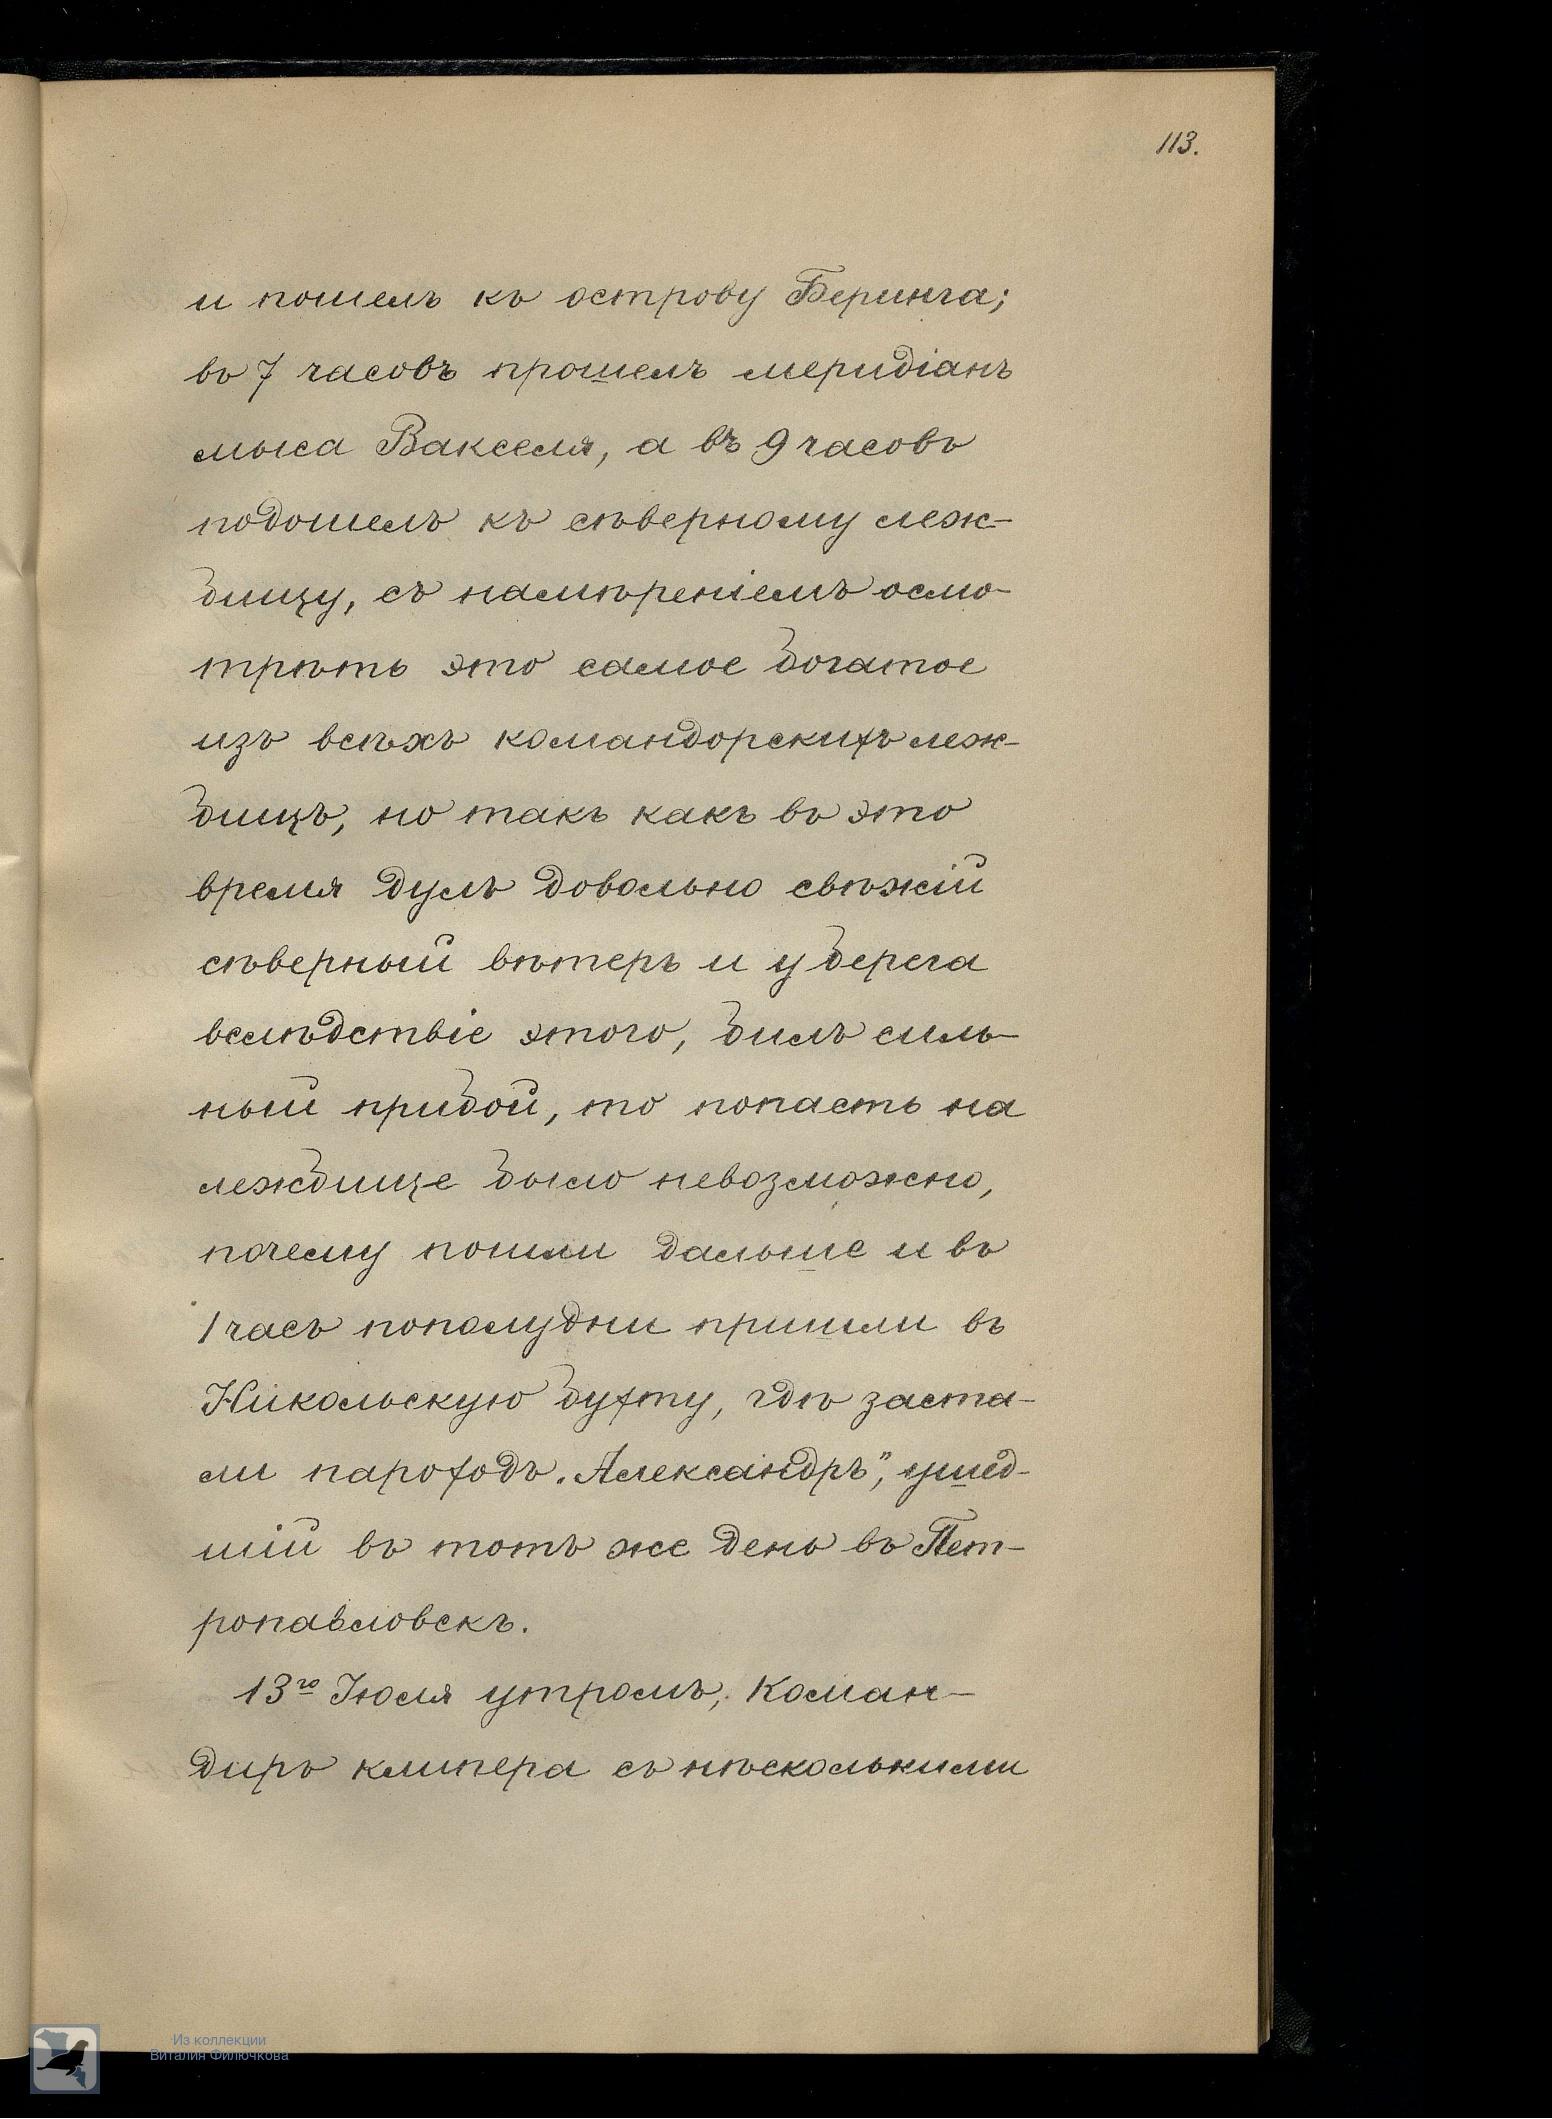 113.
и пошелъ къ острову Беринга;
въ 7 часовъ прошелъ меридіанъ
мыса Вакселя, а въ 9 часовъ
подошелъ къ сѣверному леж-
бищу, съ намѣреніемъ осмо-
трѣть это самое богатое
изъ всѣхъ командорскихъ леж-
бищъ, но такъ какъ въ это
время дулъ довольно свѣжій
сѣверный вѣтеръ и у берега
вслѣдствіе этого, билъ силь-
ный прибой, то попасть на
лежбище было невозможно,
почему пошли дальше и въ
1 часъ пополудни пришли въ
Никольскую бухту, гдѣ заста-
ли пароходъ „Александръ", ушед-
шій въ тотъ же день въ Пет-
ропавловскъ.
13го Іюля утромъ, Коман-
диръ клипера съ нѣсколькими
Из коллекции
Виталия Филючкова